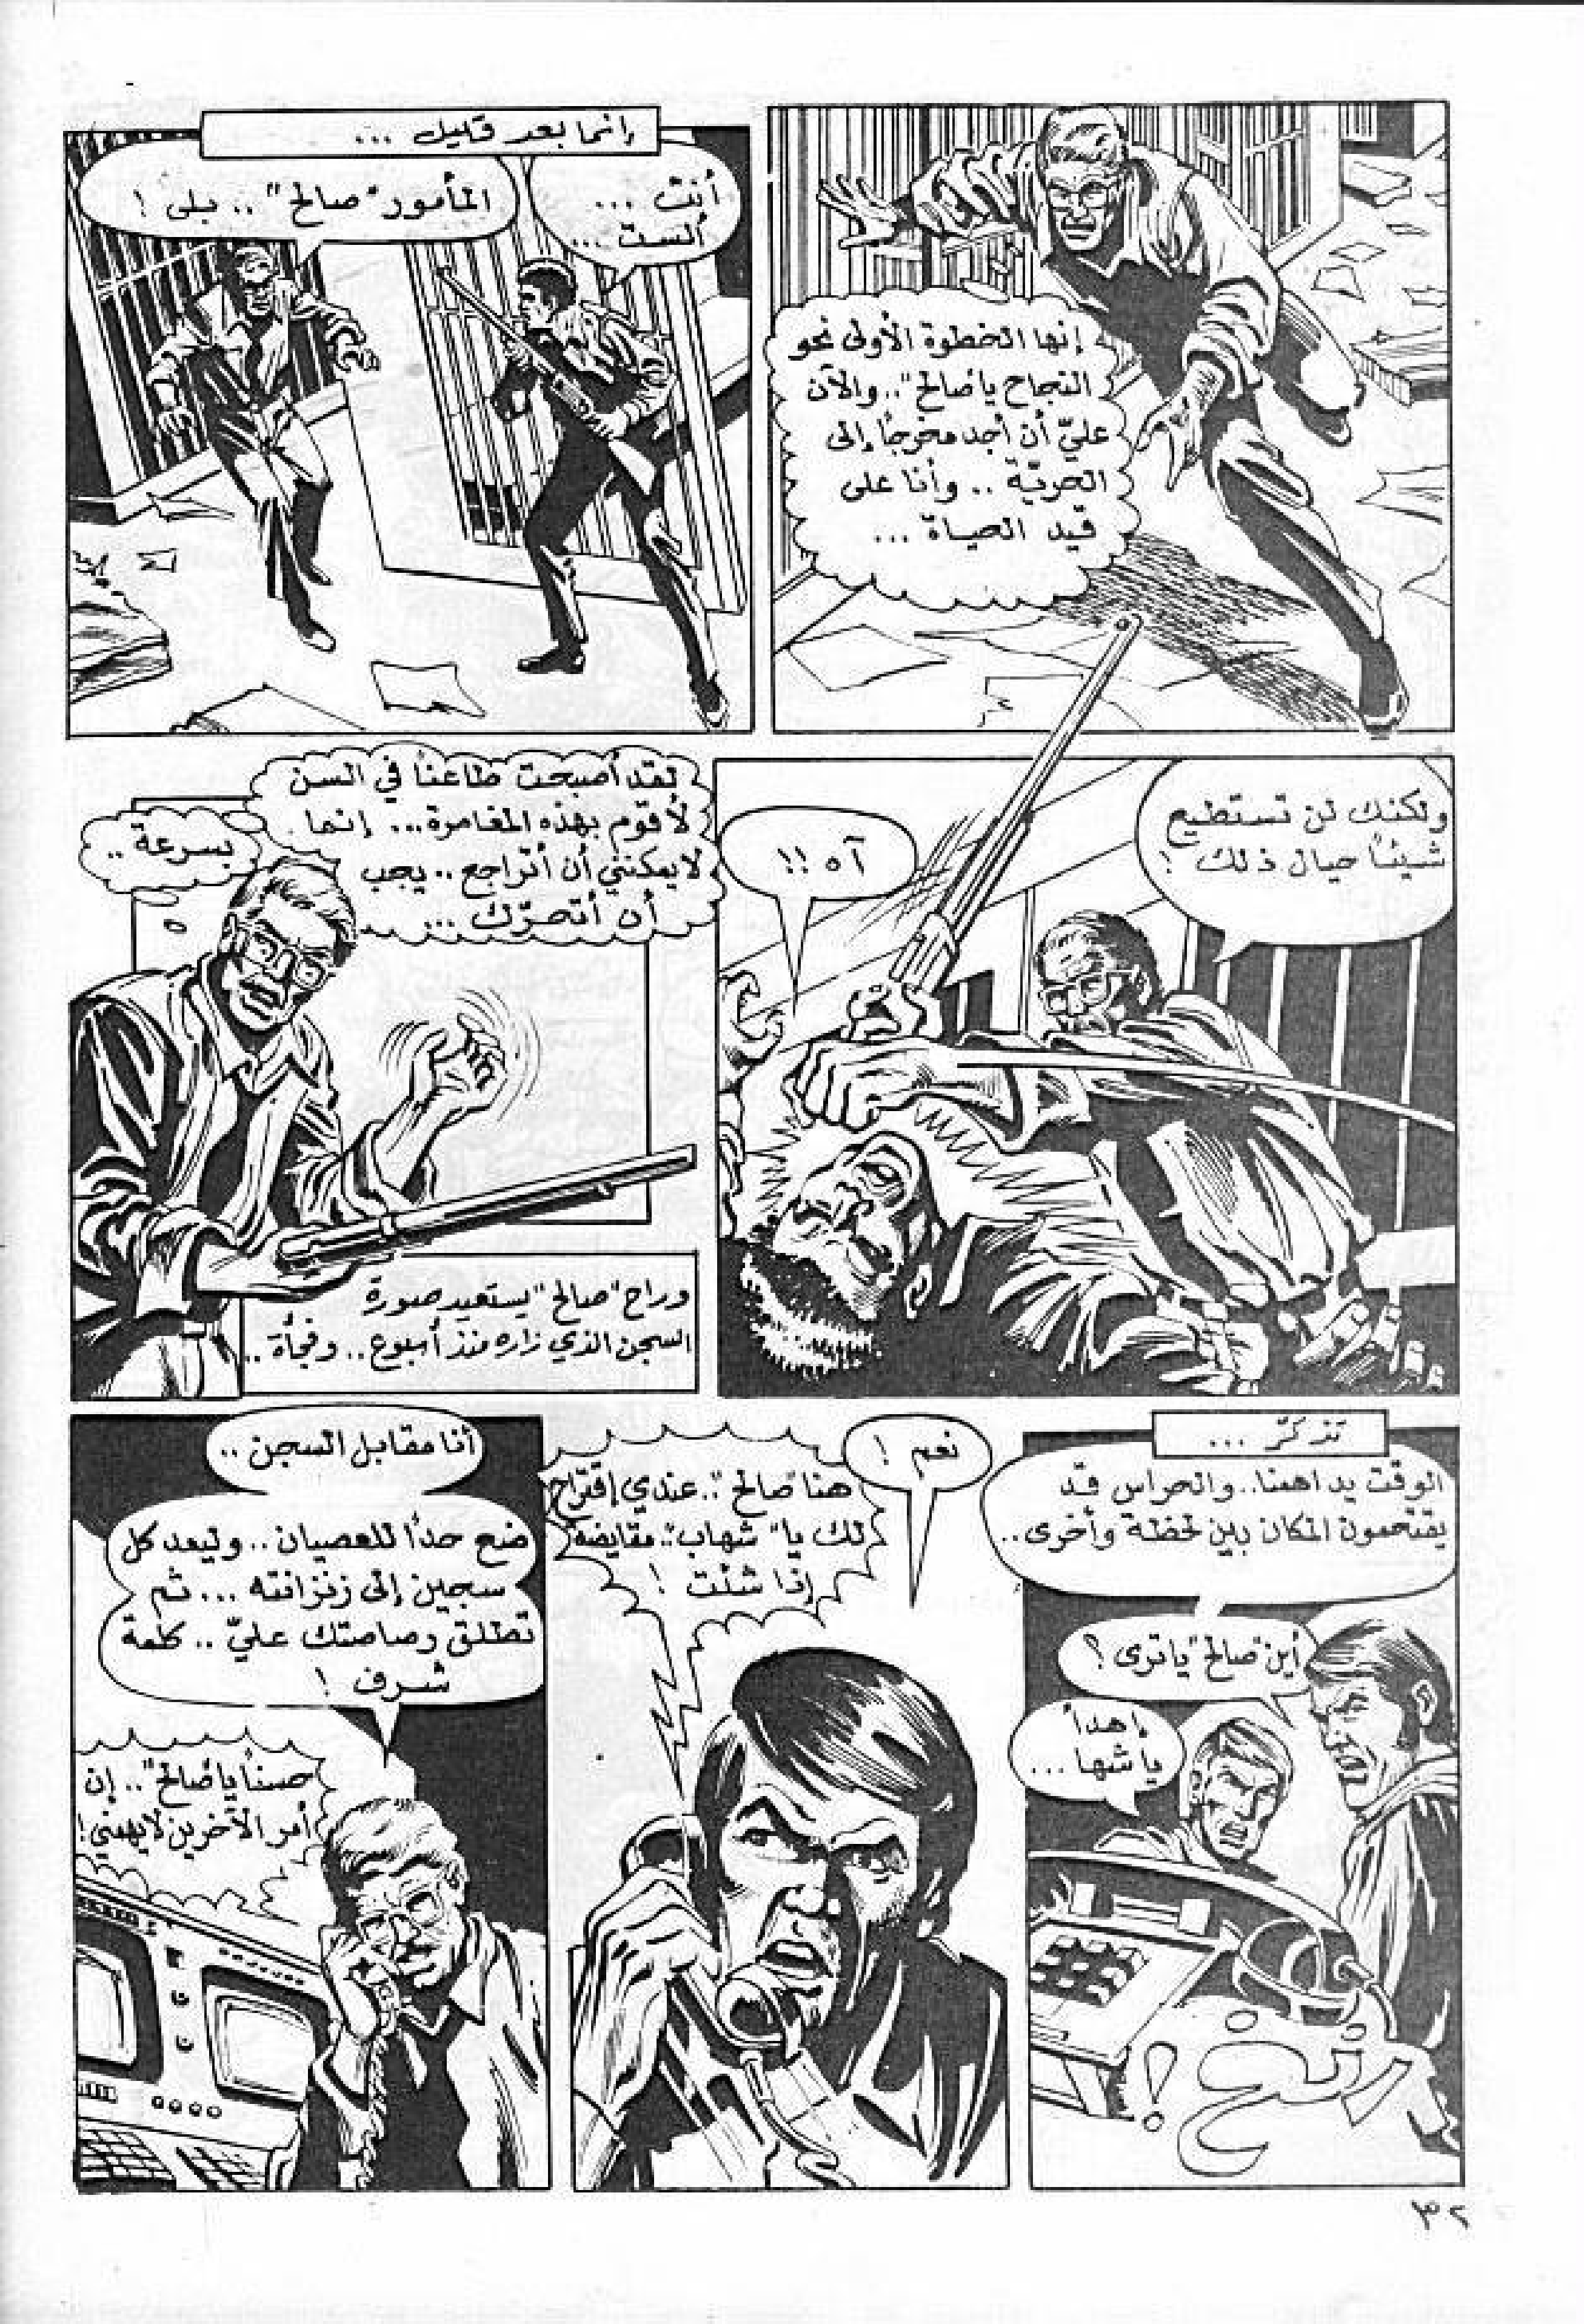 إنها الخطوة الأولى نحو
النجاح يا "صالح".. والآن
عليّ أن أجد مخرجاً إلى
الحريّة .. وأنا على
قيد الحياة ...
إنما بعد قليل ...
أنت ...
ألست ...
المأمور "صالح" .. بلى !
ولكنك لن تستطيع
شيئاً حيال ذلك !
آه !!
لقد أصبحت طاعناً في السن
لأقوم بهذه المغامرة... إنما
لا يمكنني أن أتراجع .. يجب
أن أتحرّك ...
بسرعة ..
وراح "صالح" يستعيد صورة
السجن الذي زاره منذ أسبوع.. وفجأة ..
تذكّر ...
الوقت يداهمنا.. والحراس قد
يقتحمون المكان بين لحظة وأخرى..
أين "صالح" يا ترى ؟
إهدأ
يا شها ...
رنغ !
نعم !
هنا "صالح".. عندي إقتراح
لك يا "شهاب".. مقايضة
إذا شئت !
أنا مقابل السجن ..
ضع حدًا للعصيان .. وليعد كل
سجين إلى زنزانته ... ثم
تطلق رصاصتك عليّ .. كلمة
شرف !
حسناً يا "صالح".. إن
أمر الآخرين لا يهمني !
٣٢